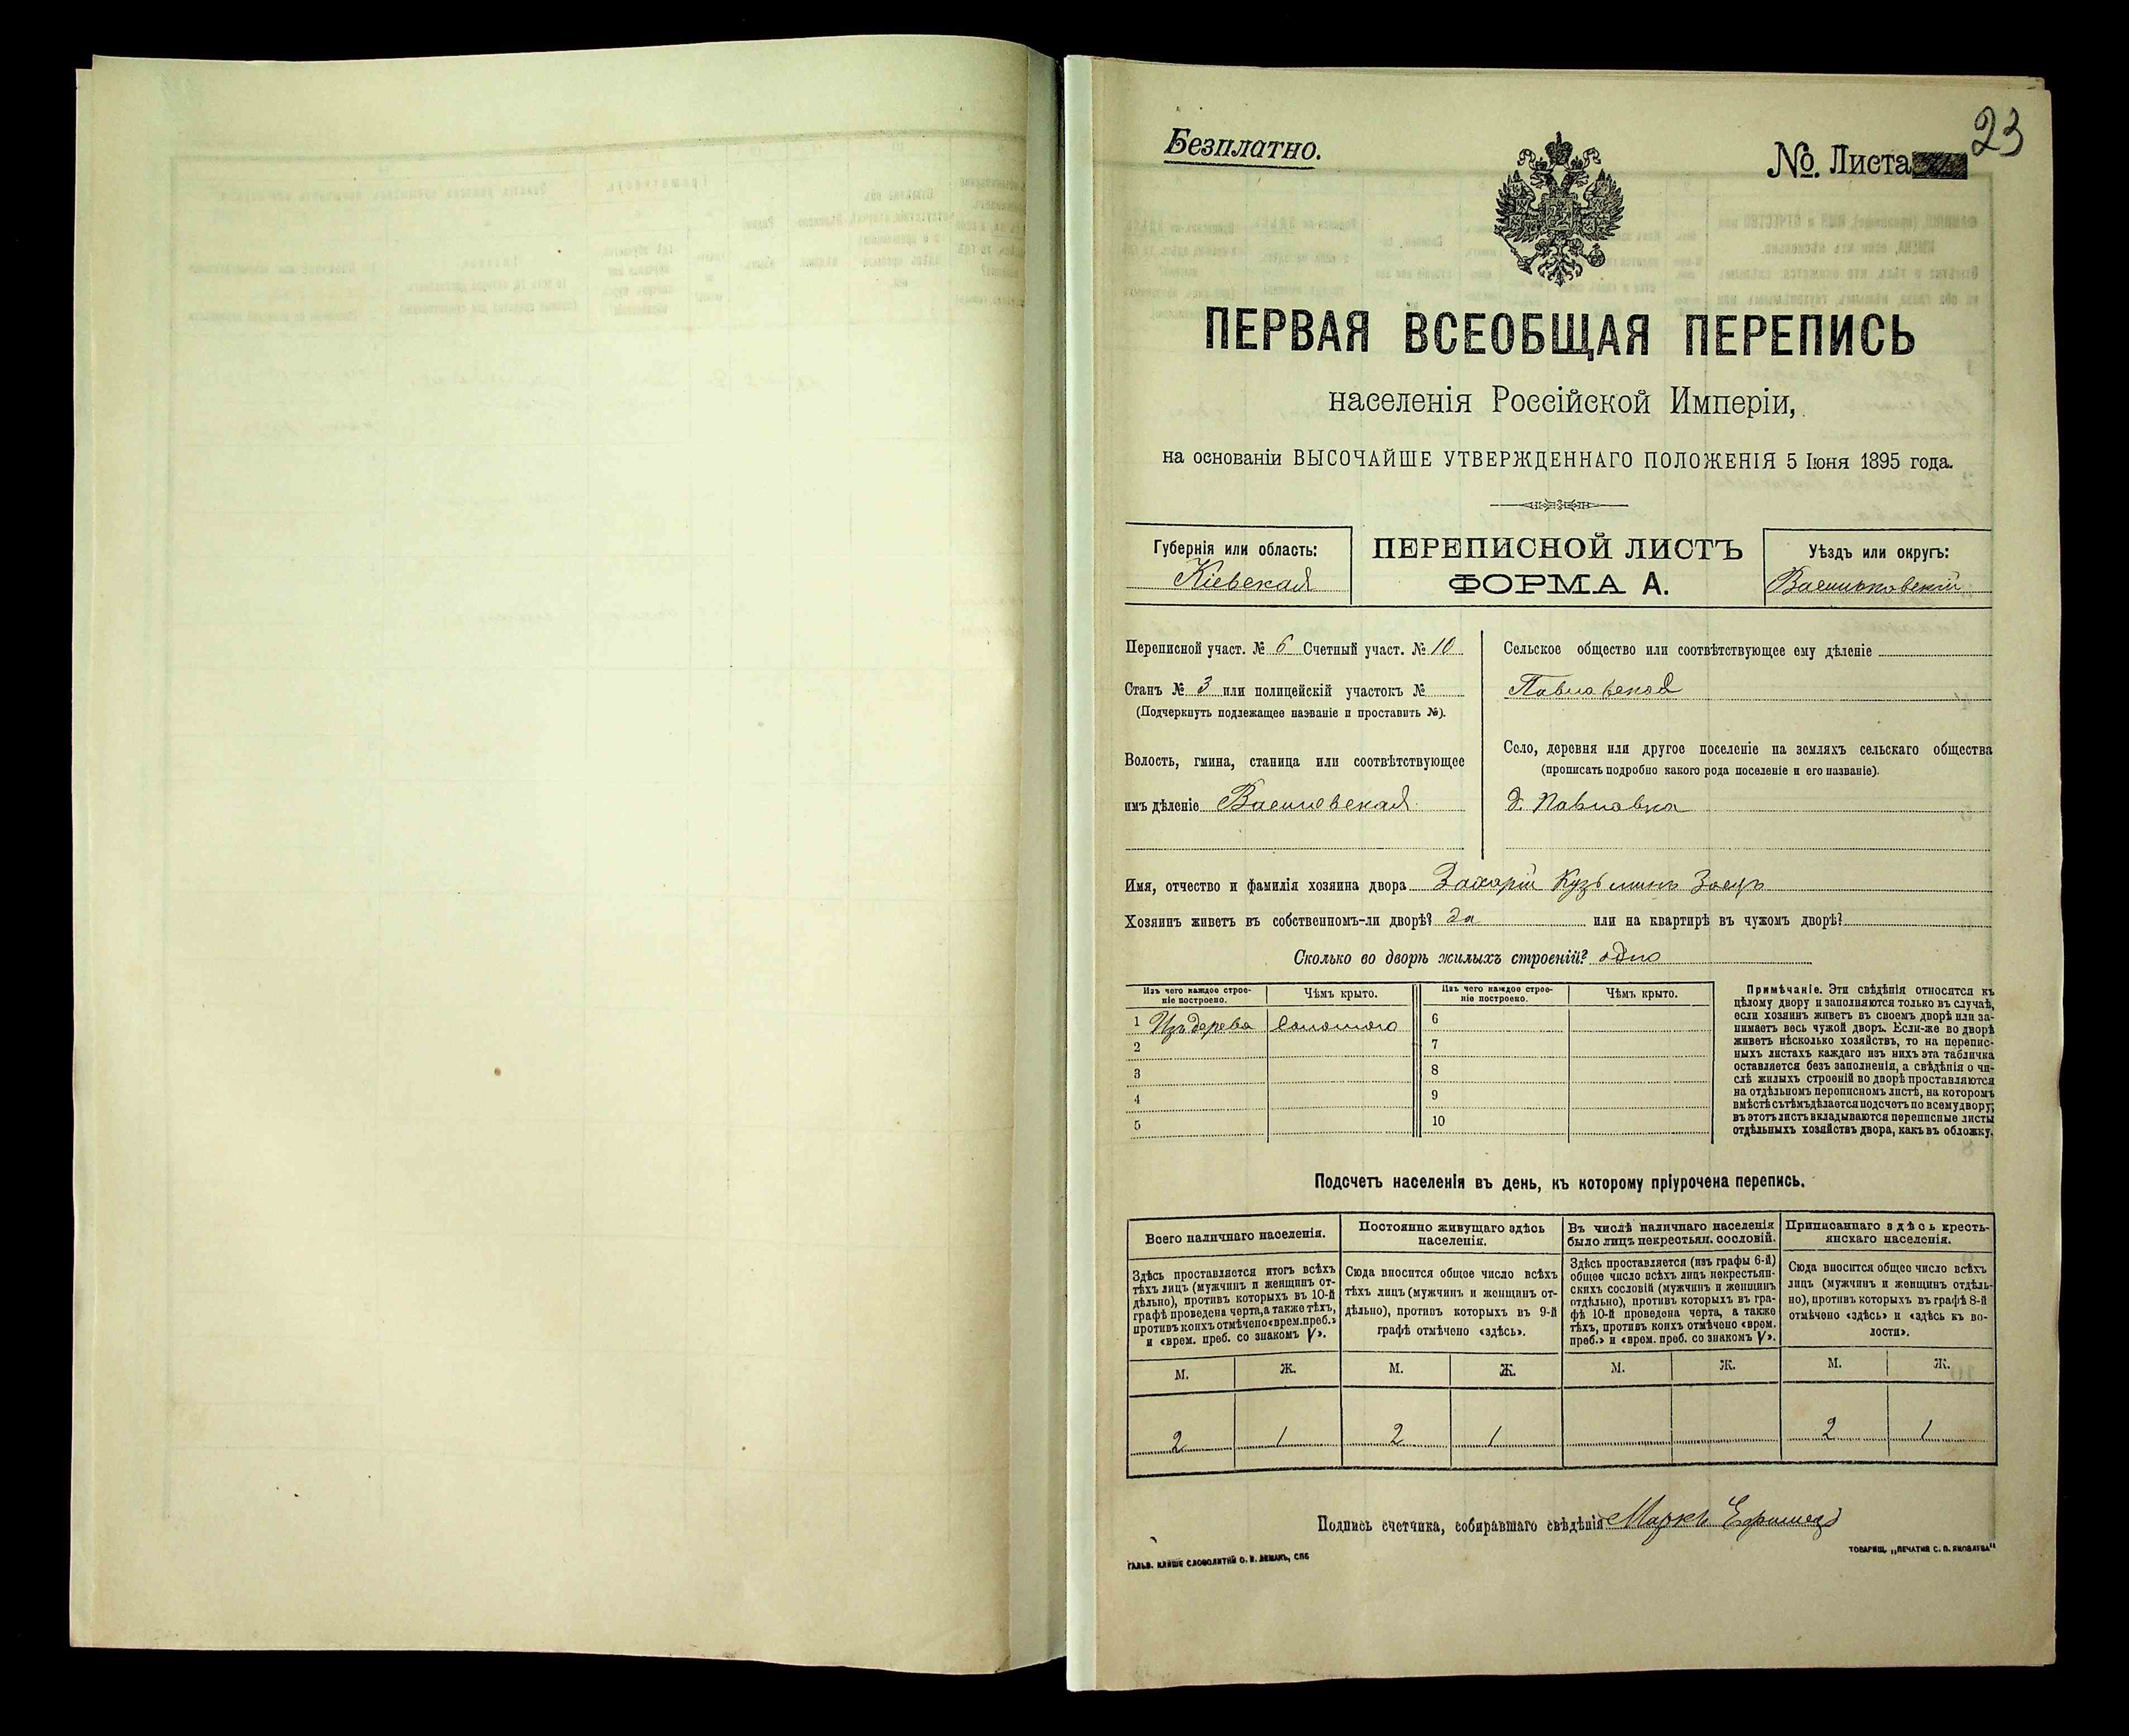 Безплатно.
№. Листа
23
ПЕРВАЯ ВСЕОБЩАЯ ПЕРЕПИСЬ
населенія Россійской Имперіи,
на основаніи ВЫСОЧАЙШЕ УТВЕРЖДЕННАГО ПОЛОЖЕНІЯ 5 Іюня 1895 года.
Губернія или область:
Кіевская
ПЕРЕПИСНОЙ ЛИСТЪ
ФОРМА А.
Уѣздъ или округъ:
Васильковскій
Переписной участ. № 6 Счетный участ. № 10
Станъ № 3 или полицейскій участокъ №
(Подчеркнуть подлежащее названіе и проставить №).
Волость, гмина, станица или соотвѣтствующее
имъ дѣленіе Васильевская
Сельское общество или соотвѣтствующее ему дѣленіе
Павловское
Село, деревня или другое поселеніе на земляхъ сельскаго общества
(прописать подробно какого рода поселеніе и его названіе).
д. Павловка
Имя, отчество и фамилія хозяина двора Захарій Кузьминъ Заецъ
Хозяинъ живетъ въ собственномъ-ли дворѣ? да или на квартирѣ въ чужомъ дворѣ?
Сколько во дворѣ жилыхъ строеній? одно
Изъ чего каждое строе-
ніе построено.
Чѣмъ крыто.
1 Изъ дерева соломою
2
3
4
5
Изъ чего каждое строе-
ніе построено.
Чѣмъ крыто.
6
7
8
9
10
Примѣчаніе. Эти свѣдѣнія относятся къ
цѣлому двору и заполняются только въ случаѣ,
если хозяинъ живетъ въ своемъ дворѣ или за-
нимаетъ весь чужой дворъ. Если-же во дворѣ
живетъ нѣсколько хозяйствъ, то на перепис-
ныхъ листахъ каждаго изъ нихъ эта табличка
оставляется безъ заполненія, а свѣдѣнія о чи-
слѣ жилыхъ строеній во дворѣ проставляются
на отдѣльномъ переписномъ листѣ, на которомъ
вмѣстѣ съ тѣмъ дѣлается подсчетъ по всему двору;
въ этотъ листъ вкладываются переписные листы
отдѣльныхъ хозяйствъ двора, какъ въ обложку.
Подсчетъ населенія въ день, къ которому пріурочена перепись.
Всего наличнаго населенія.
Здѣсь проставляется итогъ всѣхъ
тѣхъ лицъ (мужчинъ и женщинъ от-
дѣльно), противъ которыхъ въ 10-й
графѣ проведена черта, а также тѣхъ,
противъ коихъ отмѣчено «врем. преб.»
и «врем. преб. со знакомъ V».
М. Ж.
2 1
Постоянно живущаго здѣсь
населенія.
Сюда вносится общее число всѣхъ
тѣхъ лицъ (мужчинъ и женщинъ от-
дѣльно), противъ которыхъ въ 9-й
графѣ отмѣчено «здѣсь».
М. Ж.
2 1
Въ числѣ наличнаго населенія
было лицъ некрестьян. сословій.
Здѣсь проставляется (изъ графы 6-й)
общее число всѣхъ лицъ некрестьян-
скихъ сословій (мужчинъ и женщинъ
отдѣльно), противъ которыхъ въ гра-
фѣ 10-й проведена черта, а также
тѣхъ, противъ коихъ отмѣчено «врем.
преб.» и «врем. преб. со знакомъ V».
М. Ж.
Приписаннаго здѣсь кресть-
янскаго населенія.
Сюда вносится общее число всѣхъ
лицъ (мужчинъ и женщинъ отдѣль-
но), противъ которыхъ въ графѣ 8-й
отмѣчено «здѣсь» и «здѣсь въ во-
лости».
М. Ж.
2 1
Подпись счетчика, собиравшаго свѣдѣнія Маркъ
ГАЛЬВ. КЛИШЕ СЛОВОЛИТНИ О. И. ЛЕМАНЪ, СПБ
ТОВАРИЩ. „ПЕЧАТНЯ С. П. ЯКОВЛЕВА"